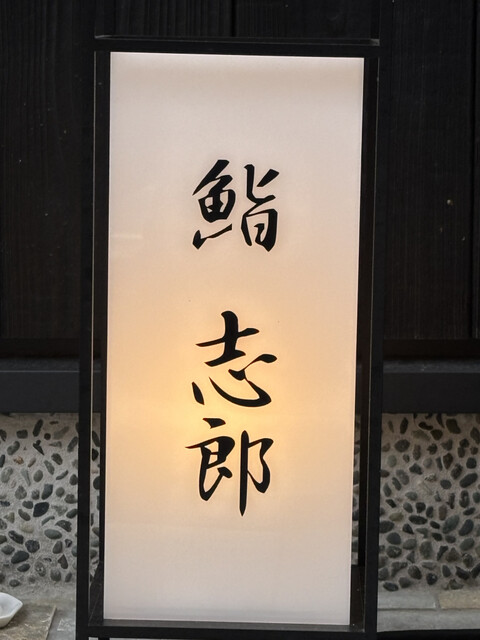 鮨 志郎